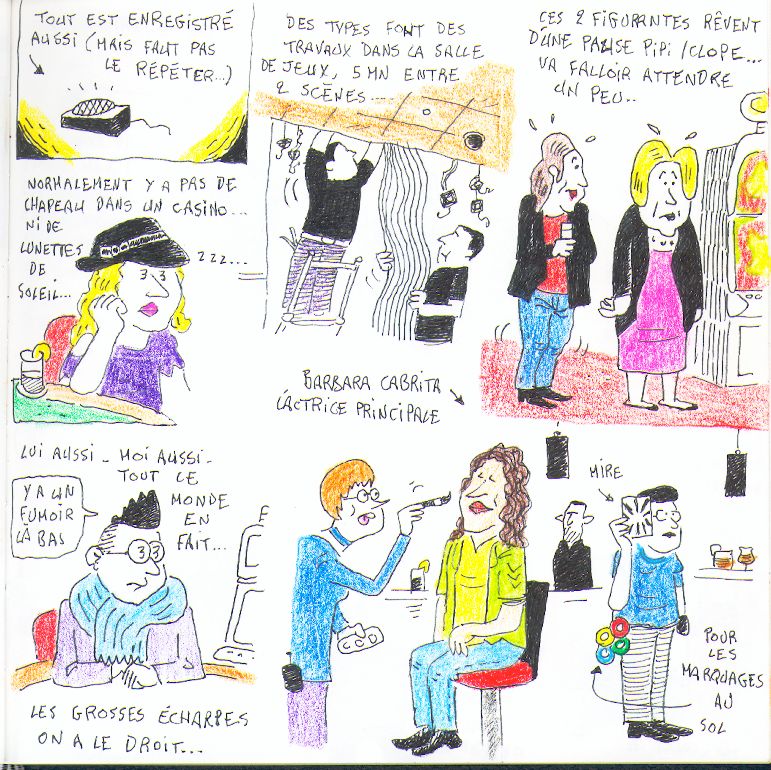 TOUT EST ENREGISTRÉ
AUSSI (MAIS FAUT PAS
LE RÉPÉTER...)
DES TYPES FONT DES
TRAVAUX DANS LA SALLE
DE JEUX, 5 MN ENTRE
2 SCÈNES...
CES 2 FIGURANTES RÊVENT
D'UNE PAUSE PIPI/CLOPE...
VA FALLOIR ATTENDRE
UN PEU..
NORMALEMENT Y A PAS DE
CHAPEAU DANS UN CASINO...
NI DE
LUNETTES
DE
SOLEIL...
ZZZ...
BARBARA CABRITA
L'ACTRICE PRINCIPALE
LUI AUSSI - MOI AUSSI -
TOUT LE
MONDE
EN
FAIT...
Y A UN
FUMOIR
LÀ BAS
LES GROSSES ÉCHARPES
ON A LE DROIT...
MIRE
POUR
LES
MARQUAGES
AU
SOL